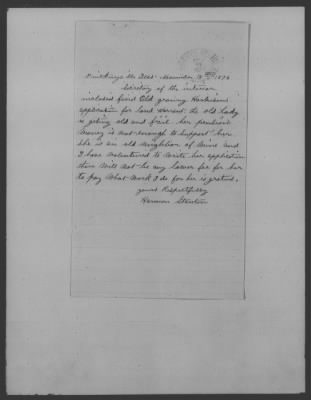 Secretary of the interior
inclosed find Old granny Harkisons
application for land warrant. the old Lady
is geting old and frail her pention
money is not enough to support her
she is an old neighbor of mine and
I have volentered to write her application
there will not be any lawer fee for her
to pay What work I do for her is gratus,
yours Respectfully
Herman